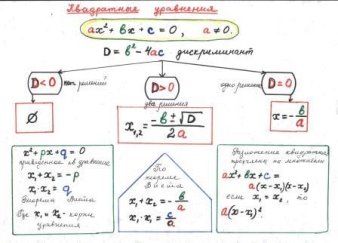 Квадратные уравнения
ax² + bx + c = 0, a ≠ 0.
D = b² - 4ac дискриминант
D < 0 нет решений
D > 0
два решения
D = 0
одно решение
Ø
x₁,₂ = (-b ± √D) / 2a
x = -b/a
x² + px + q = 0
приведенное кв. уравнение
x₁ + x₂ = -p
x₁ · x₂ = q
Теорема Виета
Где x₁ и x₂ - корни
уравнения
По
теореме
Виета
x₁ + x₂ = -b/a
x₁ · x₂ = c/a
Разложение квадратного
трехчлена на множители
ax² + bx + c =
a(x - x₁)(x - x₂)
если x₁ = x₂, то
a(x - x₁)²